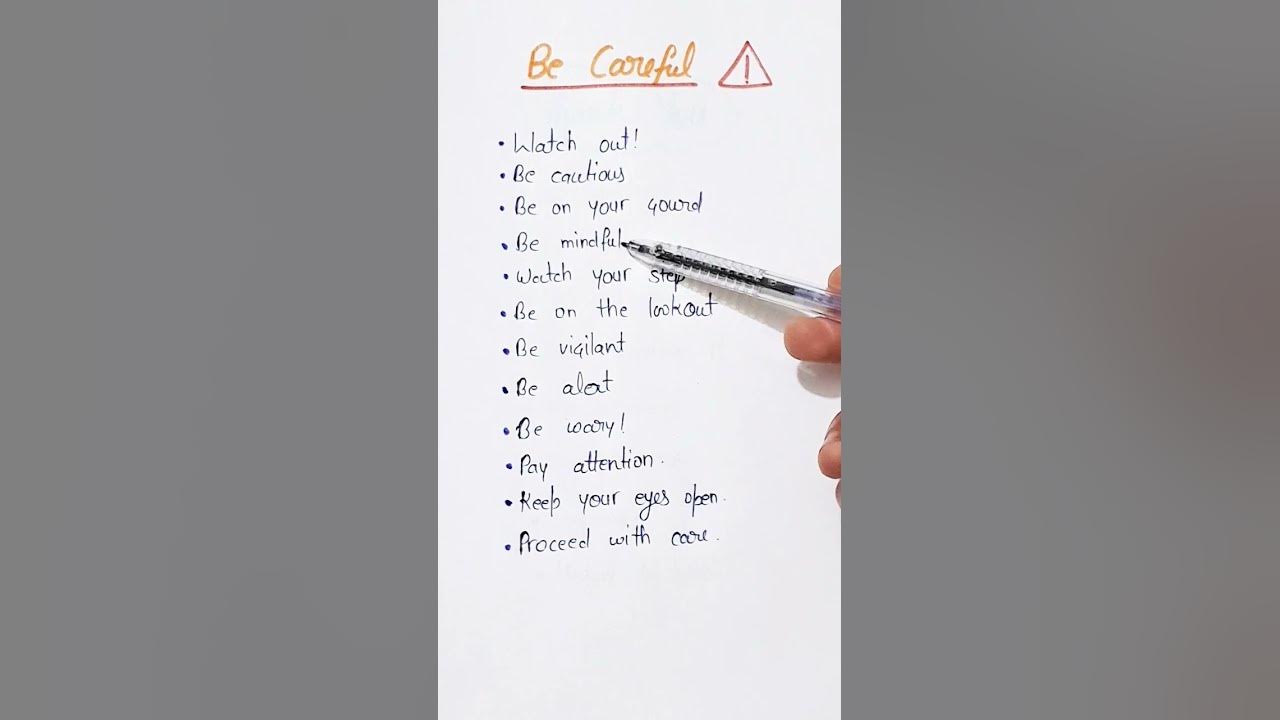 Be Careful
• Watch out!
• Be cautious
• Be on your gourd
• Be mindful
• Watch your step
• Be on the lookout
• Be vigilant
• Be alert
• Be wary!
• Pay attention.
• Keep your eyes open.
• Proceed with care.